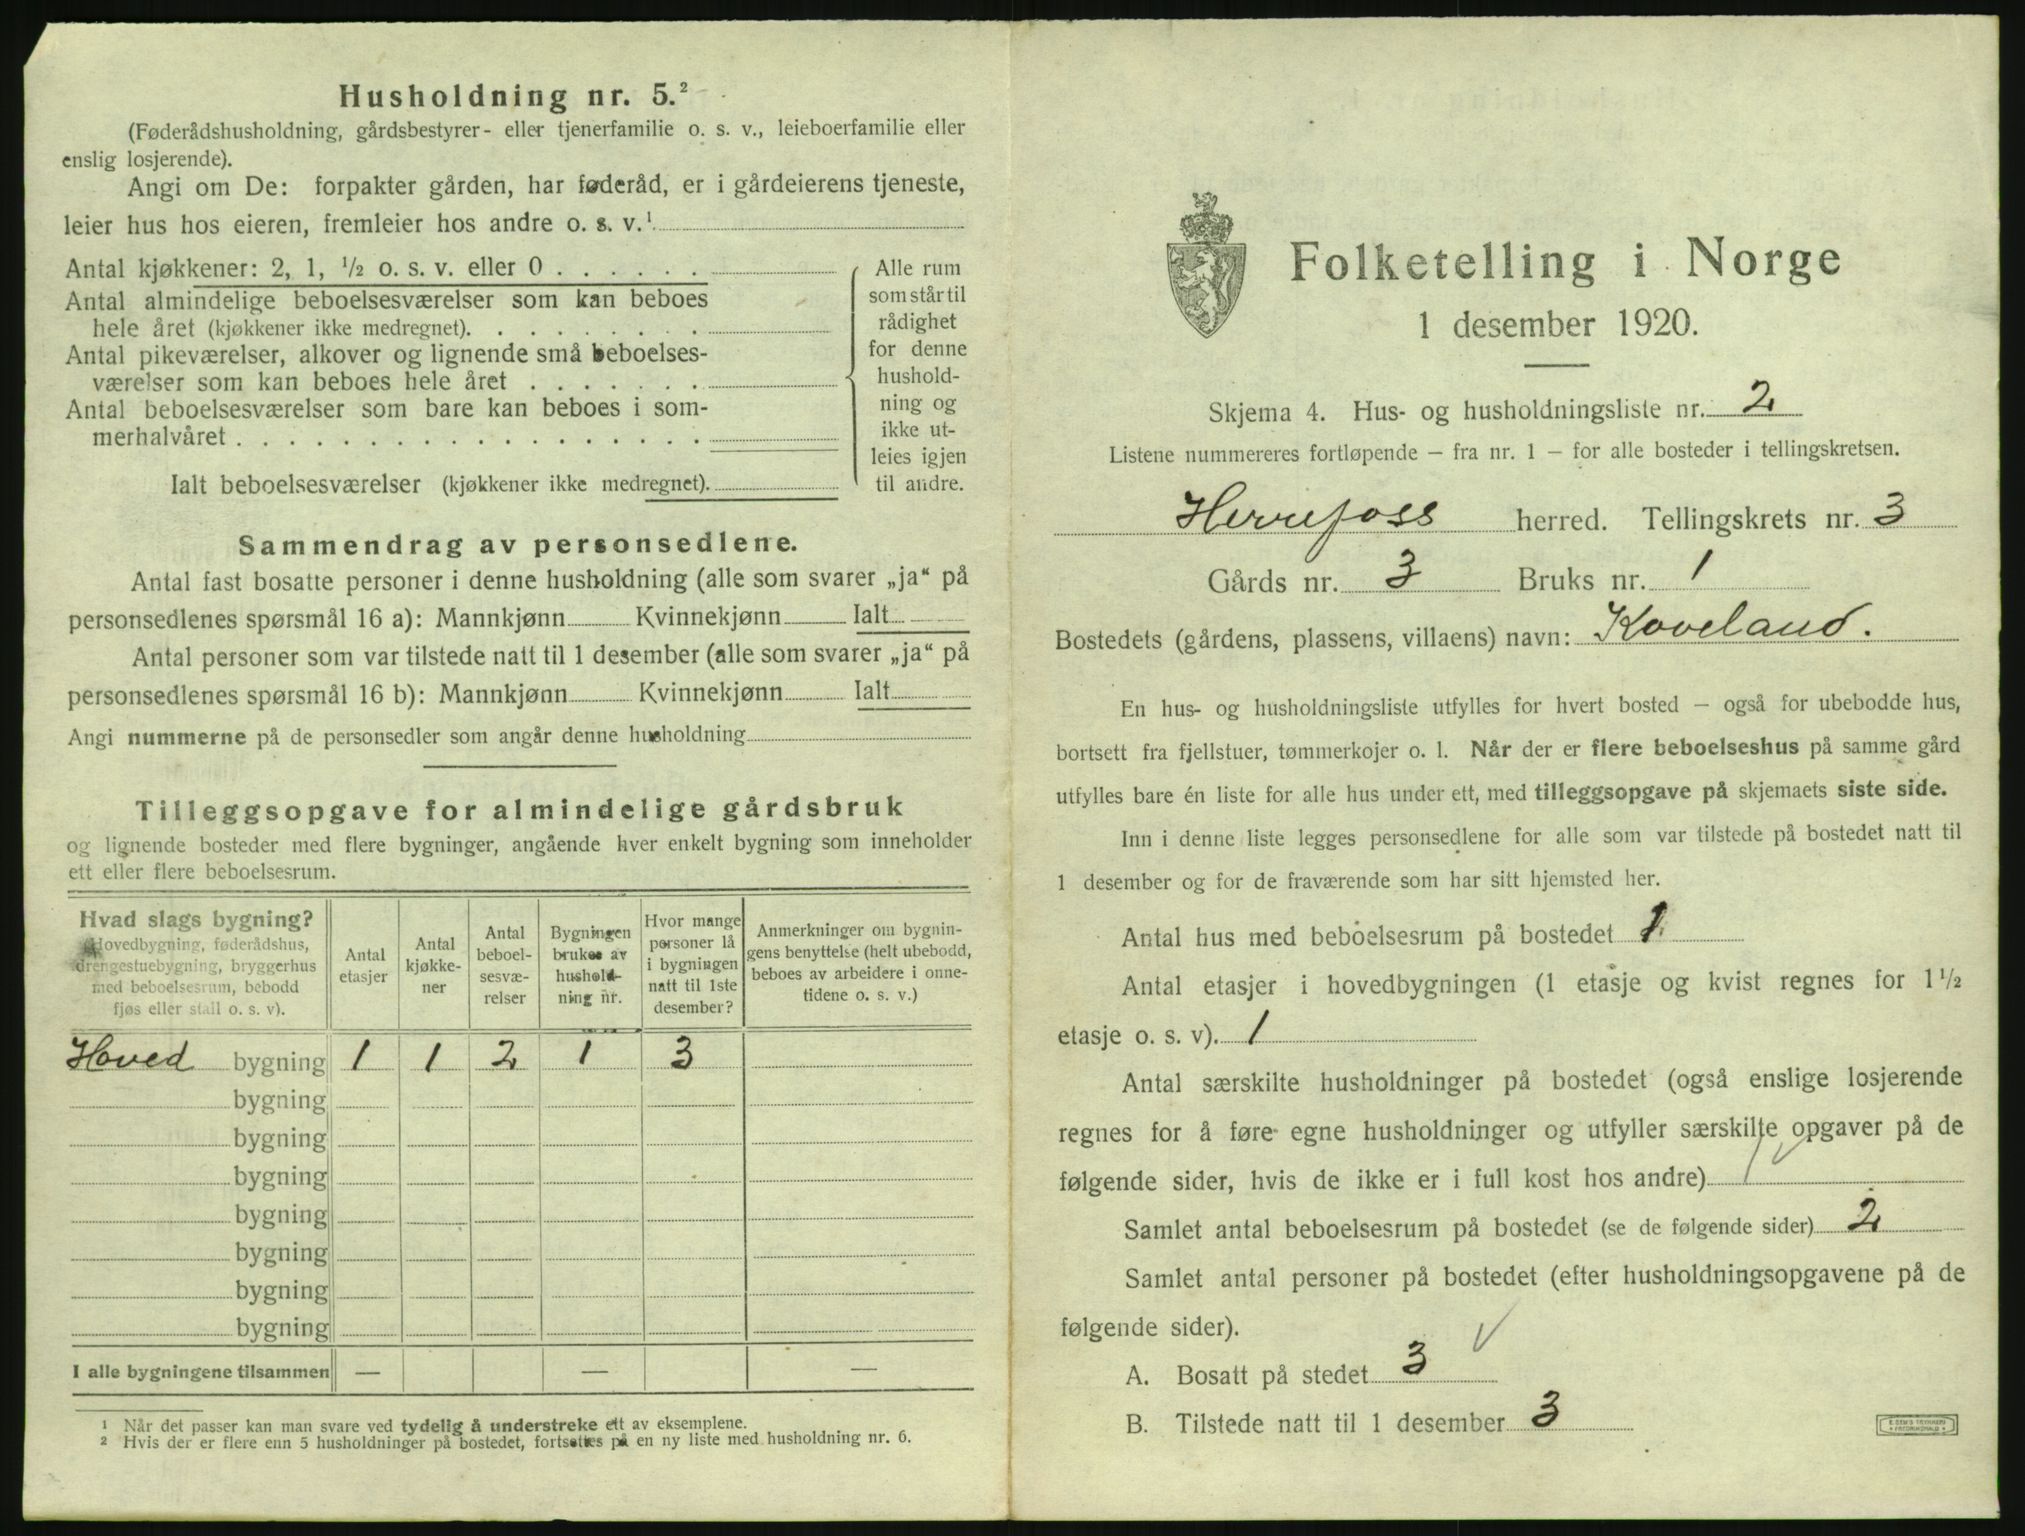 Husholdning nr. 5.²
(Føderådshusholdning, gårdsbestyrer- eller tjenerfamilie o. s. v., leieboerfamilie eller
enslig losjerende).
Angi om De: forpakter gården, har føderåd, er i gårdeierens tjeneste,
leier hus hos eieren, fremleier hos andre o. s. v.¹
Antal kjøkkener: 2, 1, ½ o. s. v. eller 0 . . . . . .
Antal almindelige beboelsesværelser som kan beboes
hele året (kjøkkener ikke medregnet). . . . . . . . .
Antal pikeværelser, alkover og lignende små beboelses-
værelser som kan beboes hele året . . . . . . .
Antal beboelsesværelser som bare kan beboes i som-
merhalvåret . . . . . . . . . . . . . . . . . .
Ialt beboelsesværelser (kjøkkener ikke medregnet).
Alle rum
som står til
rådighet
for denne
hushold-
ning og
ikke ut-
leies igjen
til andre.
Sammendrag av personsedlene.
Antal fast bosatte personer i denne husholdning (alle som svarer „ja“ på
personsedlenes spørsmål 16 a): Mannkjønn Kvinnekjønn Ialt
Antal personer som var tilstede natt til 1 desember (alle som svarer „ja“ på
personsedlenes spørsmål 16 b): Mannkjønn Kvinnekjønn Ialt
Angi nummerne på de personsedler som angår denne husholdning
Tilleggsopgave for almindelige gårdsbruk
og lignende bosteder med flere bygninger, angående hver enkelt bygning som inneholder
ett eller flere beboelsesrum.
Hvad slags bygning?
Hovedbygning, føderådshus,
drengestuebygning, bryggerhus
med beboelsesrum, bebodd
fjøs eller stall o. s. v).
Antal
etasjer
Antal
kjøkke-
ner
Antal
beboel-
sesvæ-
relser
Bygningen
brukes av
hushold-
ning nr.
Hvor mange
personer lå
i bygningen
natt til 1ste
desember?
Anmerkninger om bygnin-
gens benyttelse (helt ubebodd,
beboes av arbeidere i onne-
tidene o. s. v.)
Hoved bygning 1 1 2 1 3
bygning
bygning
bygning
bygning
bygning
bygning
bygning
I alle bygningene tilsammen — — —
¹ Når det passer kan man svare ved tydelig å understreke ett av eksemplene.
² Hvis der er flere enn 5 husholdninger på bostedet, fortsettes på en ny liste med husholdning nr. 6.
Folketelling i Norge
1 desember 1920.
Skjema 4. Hus- og husholdningsliste nr. 2
Listene nummereres fortløpende – fra nr. 1 – for alle bosteder i tellingskretsen.
Herrefoss herred. Tellingskrets nr. 3
Gårds nr. 3 Bruks nr. 1
Bostedets (gårdens, plassens, villaens) navn: Koveland.
En hus- og husholdningsliste utfylles for hvert bosted – også for ubebodde hus,
bortsett fra fjellstuer, tømmerkojer o. l. Når der er flere beboelseshus på samme gård
utfylles bare én liste for alle hus under ett, med tilleggsopgave på skjemaets siste side.
Inn i denne liste legges personsedlene for alle som var tilstede på bostedet natt til
1 desember og for de fraværende som har sitt hjemsted her.
Antal hus med beboelsesrum på bostedet 1
Antal etasjer i hovedbygningen (1 etasje og kvist regnes for 1½
etasje o. s. v). 1
Antal særskilte husholdninger på bostedet (også enslige losjerende
regnes for å føre egne husholdninger og utfyller særskilte opgaver på de
følgende sider, hvis de ikke er i full kost hos andre) 1 ✓
Samlet antal beboelsesrum på bostedet (se de følgende sider) 2
Samlet antal personer på bostedet (efter husholdningsopgavene på de
følgende sider). ✓
A. Bosatt på stedet 3
B. Tilstede natt til 1 desember 3